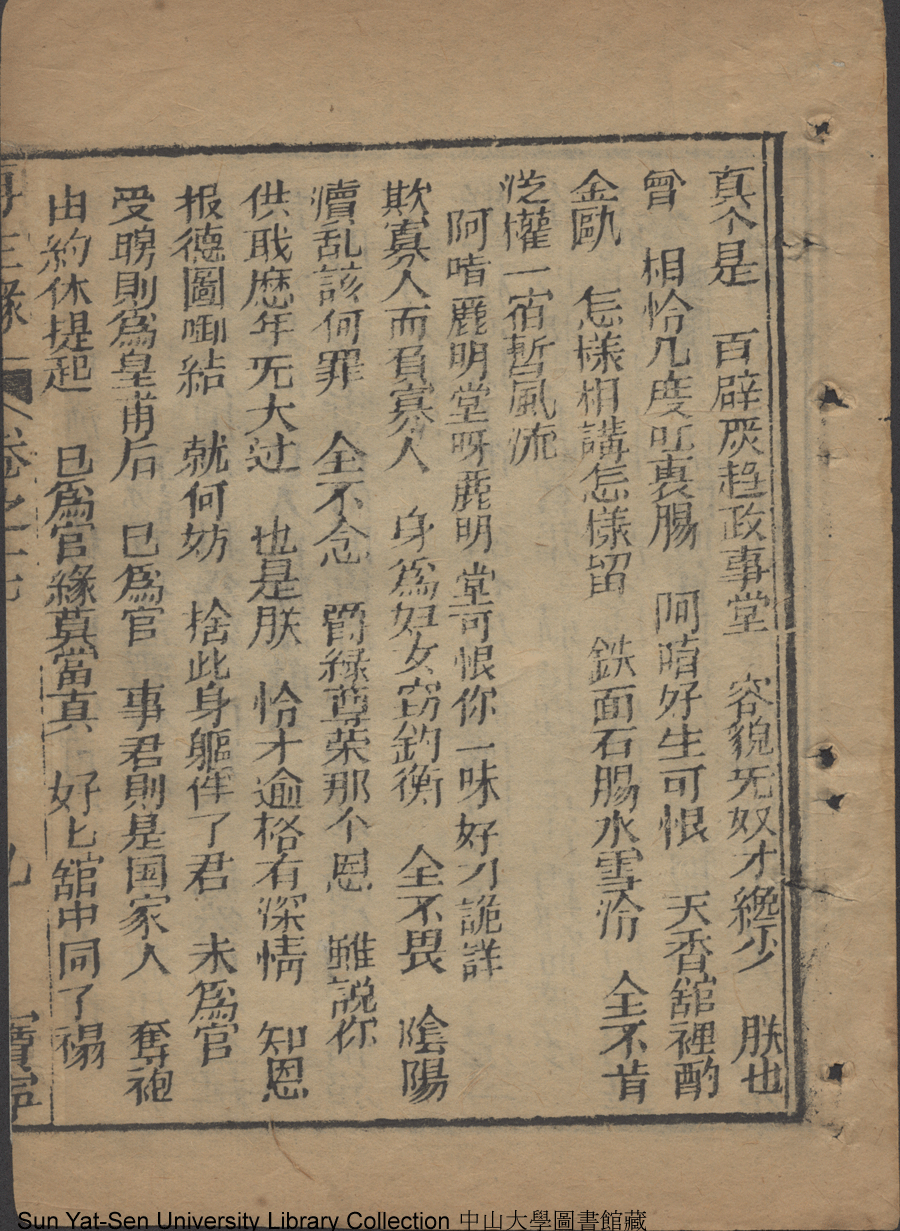 真个是 百辟灰趋政事堂 容貌旡奴才纔少 朕也
曾 相恰几度吐衷腸 阿唷好生可恨 天香舘裡酌
金甌 怎樣相講怎樣留 鉄面石腸水雪冷 全不肯
泛權一宿暫風流
阿唷麗明堂呀麗明堂可恨你一味好刁詭詳
欺寡人而負寡人 身爲妇女窃鈞衡 全不畏 陰陽
瀆乱該何罪 全不念 爵祿尊荣那个恩 虽說你
供职歷年旡大过 也是朕 恰才逾格有深情 知恩
报德圖啣結 就何妨 捨此身軀伴了君 未爲官
受聘則爲皇甫后 已爲官 事君則是国家人 奪袍
由約休提起 已爲官緣莫當真 好匕舘中同了禢
再生緣 卷之十七 九 寳寧
Sun Yat-Sen University Library Collection 中山大學圖書館藏